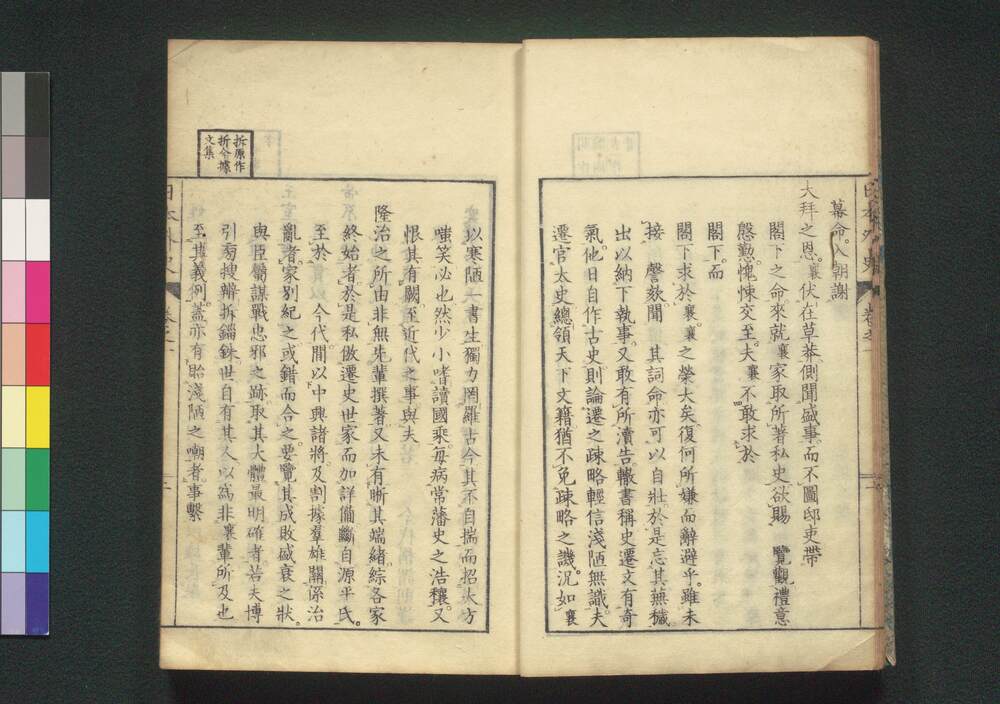 幕命。入朝謝
大拜之恩。襄伏在草莽側聞盛事。而不圖邸吏帶
閣下之命。來就襄家取所著私史欲賜　覽觀禮意
慇懃。愧悚交至。夫襄不敢求於
閣下。而
閣下求於襄。襄之榮大矣。復何所嫌而辭避乎。雖未
接　謦欬。聞　其詞命亦可以自壯。於是忘其蕪穢
出以納下執事。又敢有所瀆告。轍書稱史遷文有奇
氣。他日自作古史。則論遷之疎略輕信淺陋無識。夫
遷官太史。總領天下文籍。猶不免疎略之譏。況如襄
以寒陋一書生獨力罔羅古今其不自揣而招大方
嗤笑必也。然少小嗜讀國乘。每病常藩史之浩穰。又
恨其有闕。至近代之事與夫
隆治之所由。非無先輩撰著。又未有晰其端緒綜各家
終始者。於是私倣遷史世家而加詳備。斷自源平氏。
至於　今代。間以中興諸將。及割據羣雄關係治
亂者。家別紀之。或錯而合之。要覽其成敗盛衰之狀。
與臣屬謀戰忠邪之跡。取其大體最明確者。若夫博
引旁搜辨拆錙銖。世自有其人。以爲非襄輩所及也
至其義例。蓋亦有貽淺陋之嘲者。事繫
拆原作
折今據
文集
日本外史　卷之一